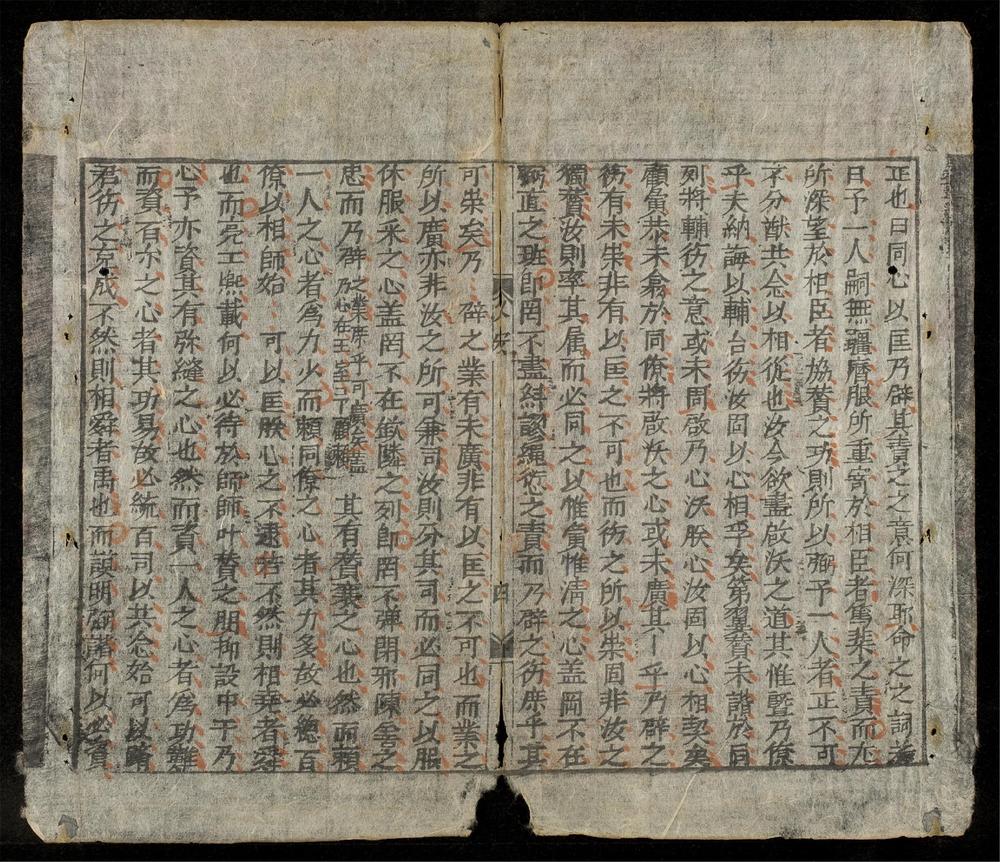 正也曰同心以匡乃辟其責之之意何深耶命之之詞若
曰予一人嗣無疆曆服所重寄於相臣者篤棐之責而尤
所深望於相臣者協贊之功則所以勵予一人者正不可
不分猷共念以相從也汝今欲盡啟沃之道其惟曁乃僚
乎夫納誨以輔台彷汝固以心相孚矣第翼贊未諧於同
列將輔彷之意或未同啟乃心沃朕心汝固以心相契矣
顧寅恭未翕於同僚將啟沃之心或未廣其 乎乃辟之
彷有未朱非有以匡之不可也而彷之所以朱固非汝之
獨賛汝則率其属而必同之以惟寅惟清之心盖罔不在
弼直之班卽罔不盡糾謬繩愆之責而乃辟之彷庶乎其
可朱矣乃辟之業有未廣非有以匡之不可也而業之
所以廣亦非汝之所可兼司汝則分其司而必同之以服
休服采之心盖罔不在欽隣之列卽罔不殫閑邪陳善之
忠而乃辟之業庶乎可廣矣盖乃心在王室 顧賴其有賛棐之心也然而賴
一人之心者爲力火而賴同僚之心者其力多故必總百
僚以相師始可以匡朕心之不逮若不然則相弃者浞
也而亮工熙載何以必待於師師叶賛之朋抑設中于乃
心予亦資其有弥縫之心也然而資一人之心者爲功難
而資有尓之心者其功易故必統百司以共念始可以
君彷之克成不然則相舜者禹也而謨明弼諧何以必資
四